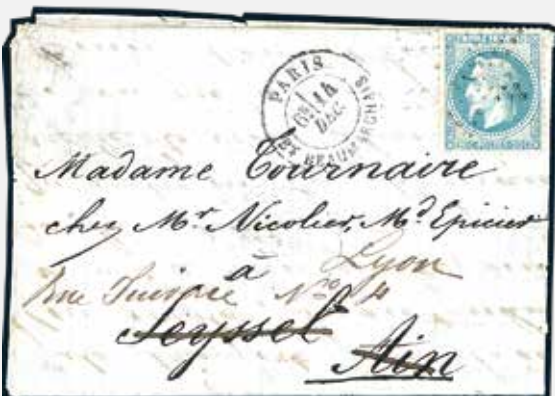 PARIS
14
DEC
BEAUMARCHAIS
Madame Tournaire
chez Mr. Nicolier, Md. Epicier
à Lyon
Rue No 4
Seyssel
Ain